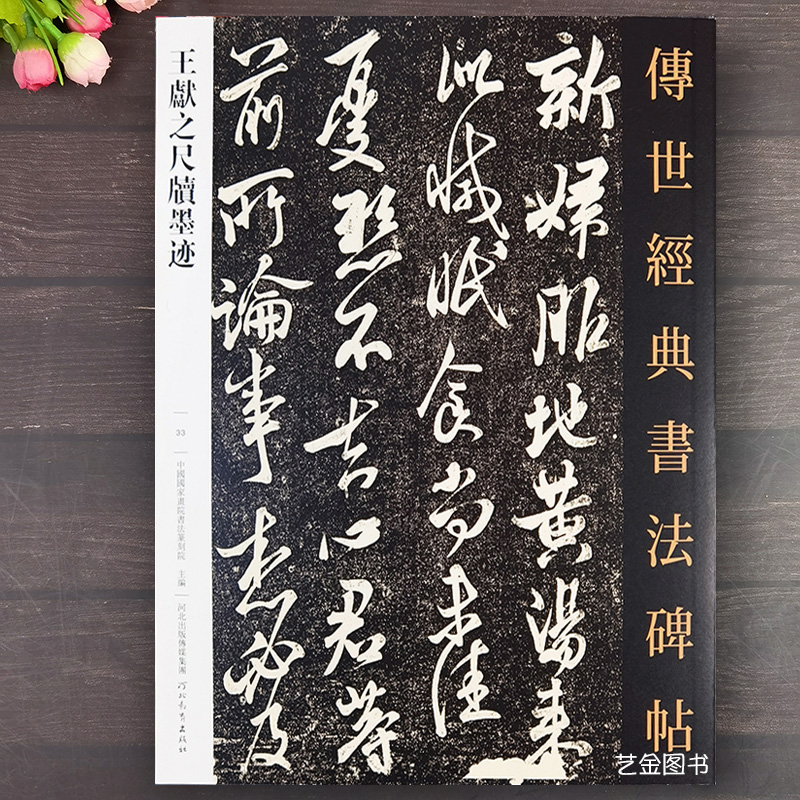 傳世經典書法碑帖
新婦服地黃湯來
似減眠食尚未佳
憂懸不去心君等
前所論事想必及
王獻之尺牘墨迹
33
中國國家畫院書法篆刻院 主編
河北出版傳媒集團
河北教育出版社
艺金图书